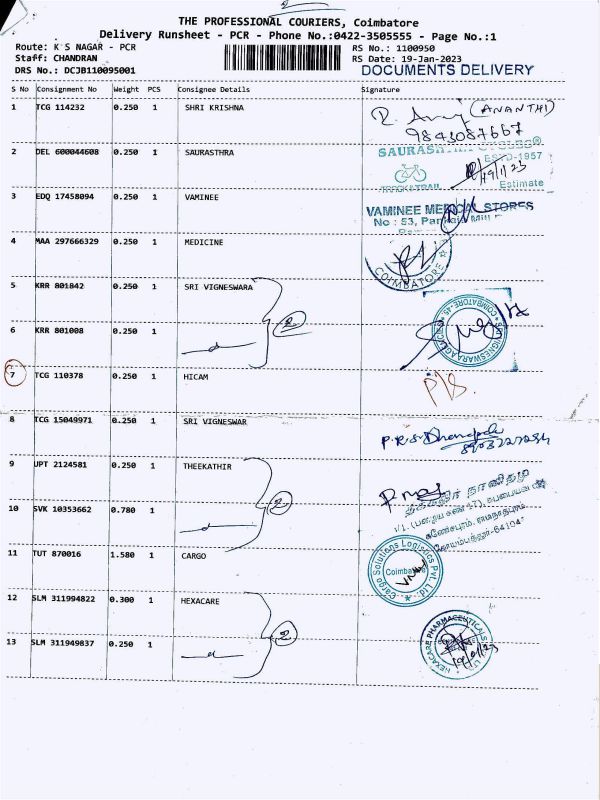 THE PROFESSIONAL COURIERS, Coimbatore
Delivery Runsheet - PCR - Phone No.:0422-3505555 - Page No.:1
Route: K S NAGAR - PCR
RS No.: 1100950
Staff: CHANDRAN
RS Date: 19-Jan-2023
DRS No.: DCJB110095001
DOCUMENTS DELIVERY
S No Consignment No Weight PCS Consignee Details Signature
1 TCG 114232 0.250 1 SHRI KRISHNA
(ANANTHI)
9843087667
2 DEL 600044608 0.250 1 SAURASTHRA
ESTD-1957
19/1/23
Estimate
3 EDQ 17458094 0.250 1 VAMINEE
VAMINEE MEDICAL STORES
No : 53,
4 MAA 297666329 0.250 1 MEDICINE
COIMBATORE
5 KRR 801842 0.250 1 SRI VIGNESWARA
2
6 KRR 801008 0.250 1
7 TCG 110378 0.250 1 HICAM
P/S.
8 TCG 15049971 0.250 1 SRI VIGNESWAR
9 UPT 2124581 0.250 1 THEEKATHIR
2
10 SVK 10353662 0.780 1
11 TUT 870016 1.580 1 CARGO
Cargo Solutions Logistics Pvt. Ltd.
Coimbatore
12 SLM 311994822 0.300 1 HEXACARE
2
13 SLM 311949837 0.250 1
HEXACARE PHARMACEUTICALS
19/1/23